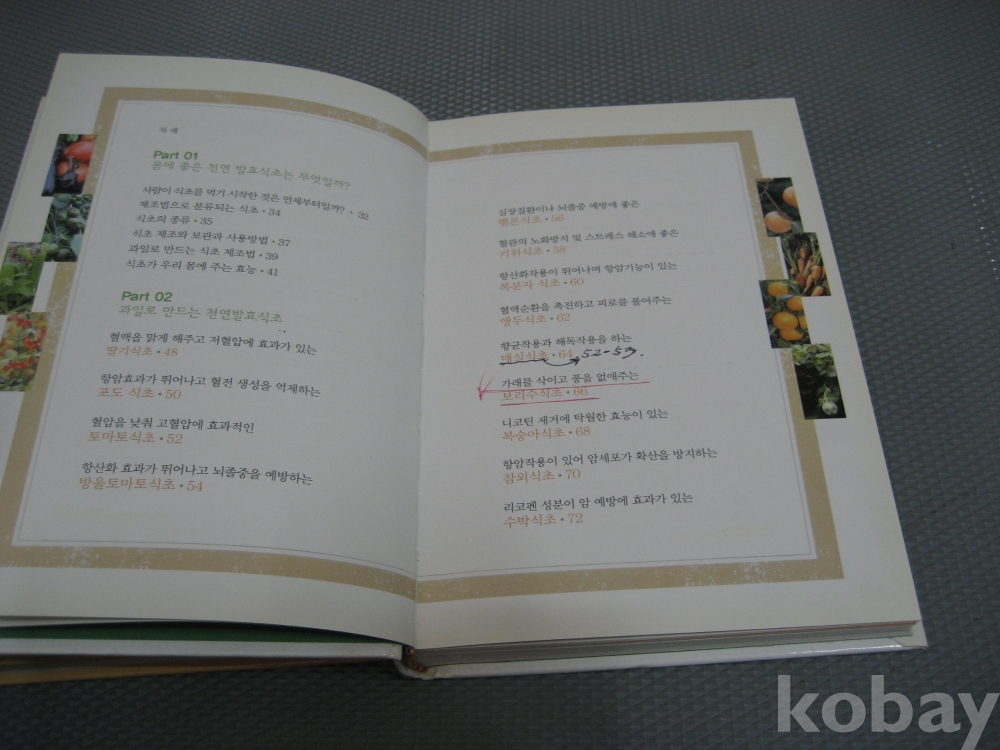 차례
Part 01
몸에 좋은 천연 발효식초는 무엇일까?
사람이 식초를 먹기 시작한 것은 언제부터일까? • 32
제조법으로 분류되는 식초 • 34
식초의 종류 • 35
식초 제조와 보관과 사용방법 • 37
과일로 만드는 식초 제조법 • 39
식초가 우리 몸에 주는 효능 • 41
Part 02
과일로 만드는 천연발효식초
혈액을 맑게 해주고 저혈압에 효과가 있는
딸기식초 • 48
항암효과가 뛰어나고 혈전 생성을 억제하는
포도 식초 • 50
혈압을 낮춰 고혈압에 효과적인
토마토식초 • 52
항산화 효과가 뛰어나고 뇌졸중을 예방하는
방울토마토식초 • 54
심장질환이나 뇌졸중 예방에 좋은
멜론식초 • 56
혈관의 노화방지 및 스트레스 해소에 좋은
키위식초 • 58
항산화작용이 뛰어나며 항암기능이 있는
복분자 식초 • 60
혈액순환을 촉진하고 피로를 풀어주는
앵두식초 • 62
항균작용과 해독작용을 하는
매실식초 • 64 52-53.
가래를 삭이고 풍을 없애주는
보리주식초 • 66
니코틴 제거에 탁월한 효능이 있는
복숭아식초 • 68
항암작용이 있어 암세포가 확산을 방지하는
참외식초 • 70
리코펜 성분이 암 예방에 효과가 있는
수박식초 • 72
kobay